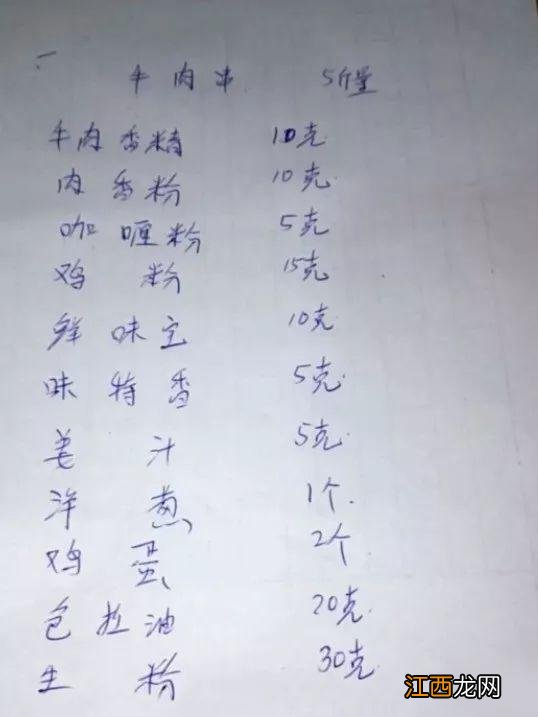 一
牛肉串 5斤量
牛肉香精 10克
肉香粉 10克
咖喱粉 5克
鸡粉 15克
鲜味宝 10克
味特香 5克
姜汁 5克
洋葱 1个
鸡蛋 2个
色拉油 20克
生粉 30克
江西龙网